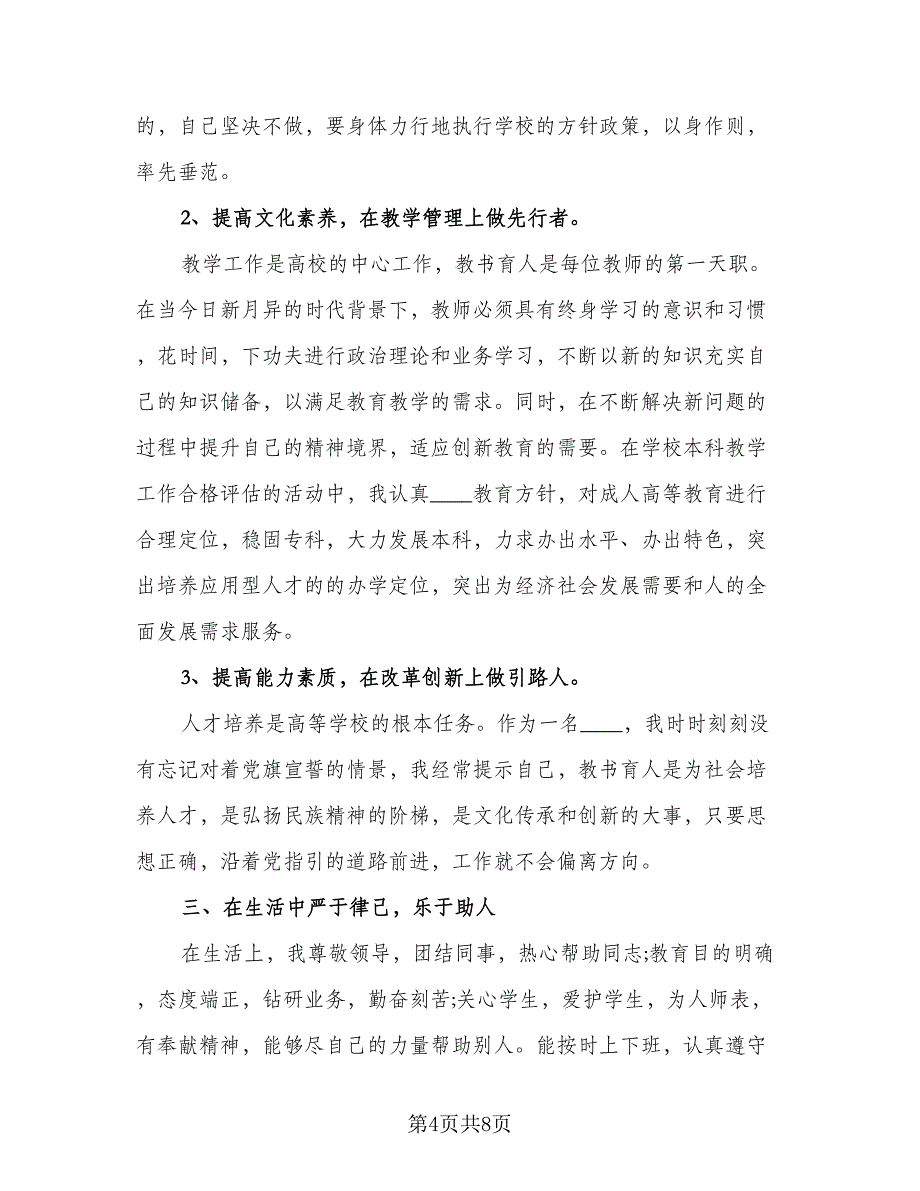 的，自己坚决不做，要身体力行地执行学校的方针政策，以身作则，
率先垂范。
2、提高文化素养，在教学管理上做先行者。
教学工作是高校的中心工作，教书育人是每位教师的第一天职。
在当今日新月异的时代背景下，教师必须具有终身学习的意识和习惯
，花时间，下功夫进行政治理论和业务学习，不断以新的知识充实自
己的知识储备，以满足教育教学的需求。同时，在不断解决新问题的
过程中提升自己的精神境界，适应创新教育的需要。在学校本科教学
工作合格评估的活动中，我认真____教育方针，对成人高等教育进行
合理定位，稳固专科，大力发展本科，力求办出水平、办出特色，突
出培养应用型人才的的办学定位，突出为经济社会发展需要和人的全
面发展需求服务。
3、提高能力素质，在改革创新上做引路人。
人才培养是高等学校的根本任务。作为一名____，我时时刻刻没
有忘记对着党旗宣誓的情景，我经常提示自己，教书育人是为社会培
养人才，是弘扬民族精神的阶梯，是文化传承和创新的大事，只要思
想正确，沿着党指引的道路前进，工作就不会偏离方向。
三、在生活中严于律己，乐于助人
在生活上，我尊敬领导，团结同事，热心帮助同志;教育目的明确
，态度端正，钻研业务，勤奋刻苦;关心学生，爱护学生，为人师表，
有奉献精神，能够尽自己的力量帮助别人。能按时上下班，认真遵守
第4页共8页